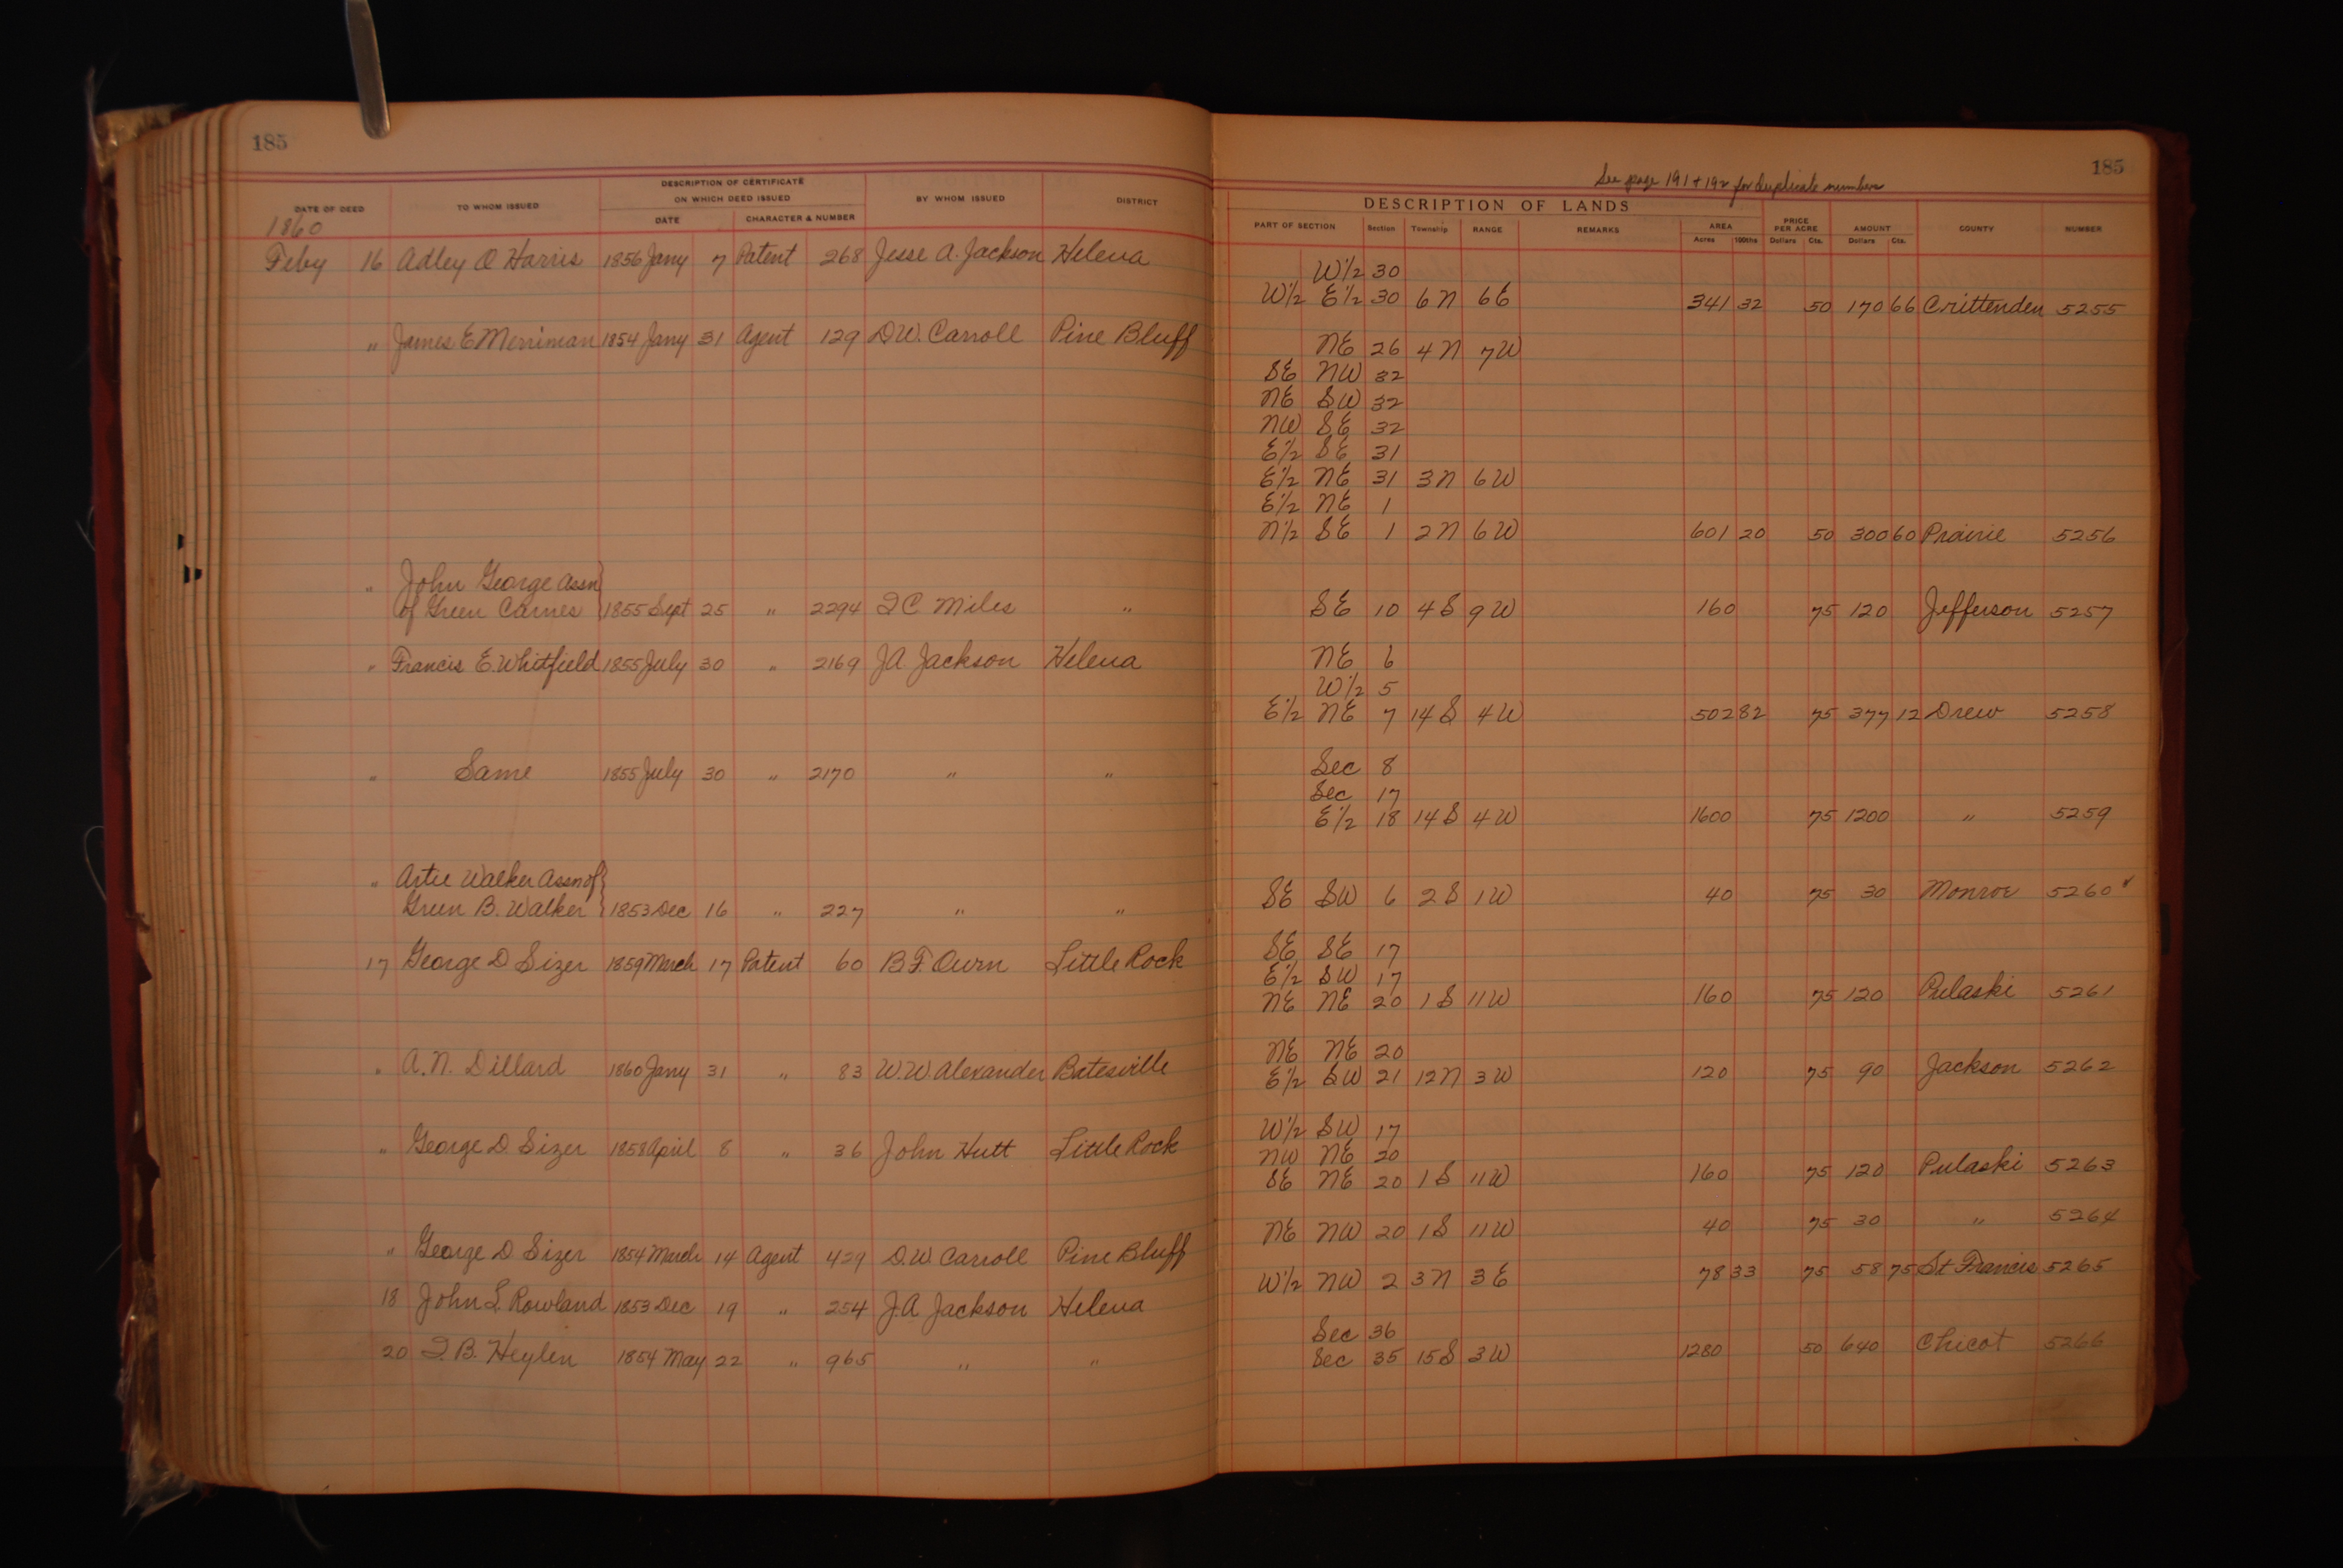 185
DATE OF DEED TO WHOM ISSUED DESCRIPTION OF CERTIFICATE ON WHICH DEED ISSUED DATE CHARACTER & NUMBER BY WHOM ISSUED DISTRICT
1860
Feby 16 Adley O Harris 1856 Jany 7 Patent 268 Jesse A. Jackson Helena
" James E Merriman 1854 Jany 31 Agent 129 D.W. Carroll Pine Bluff
" John George Assn
of Green Carnes 1855 Sept 25 " 2294 I C Miles "
" Francis E. Whitfield 1855 July 30 " 2169 J A Jackson Helena
" Same 1855 July 30 " 2170 " "
" Artie Walker Assn of
Green B. Walker 1853 Dec 16 " 227 " "
17 George D Sizer 1859 March 17 Patent 60 B.F. Owen Little Rock
" A. N. Dillard 1860 Jany 31 " 83 W.W. Alexander Batesville
" George D. Sizer 1858 April 8 " 36 John Hutt Little Rock
" George D Sizer 1854 March 14 Agent 429 D.W. Carroll Pine Bluff
18 John L Rowland 1853 Dec 19 " 254 J.A Jackson Helena
20 I. B. Heylen 1854 May 22 " 965 " "
185
See page 191 + 192 for duplicate numbers
DESCRIPTION OF LANDS
PART OF SECTION Section Township RANGE REMARKS AREA Acres 100ths PRICE PER ACRE Dollars Cts. AMOUNT Dollars Cts. COUNTY NUMBER
W½ 30
W½ E½ 30 6 N 6 E 341 32 50 170 66 Crittenden 5255
NE 26 4 N 7 W
SE NW 32
NE SW 32
NW SE 32
E½ SE 31
E½ NE 31 3 N 6 W
E½ NE 1
N½ SE 1 2 N 6 W 601 20 50 300 60 Prairie 5256
SE 10 4 S 9 W 160 75 120 Jefferson 5257
NE 6
W½ 5
E½ NE 7 14 S 4 W 502 82 75 377 12 Drew 5258
Sec 8
Sec 17
E½ 18 14 S 4 W 1600 75 1200 " 5259
SE SW 6 2 S 1 W 40 75 30 Monroe 5260
SE SE 17
E½ SW 17
NE NE 20 1 S 11 W 160 75 120 Pulaski 5261
NE NE 20
E½ SW 21 12 N 3 W 120 75 90 Jackson 5262
W½ SW 17
NW NE 20
SE NE 20 1 S 11 W 160 75 120 Pulaski 5263
NE NW 20 1 S 11 W 40 75 30 " 5264
W½ NW 2 3 N 3 E 78 33 75 58 75 St Francis 5265
Sec 36
Sec 35 15 S 3 W 1280 50 640 Chicot 5266